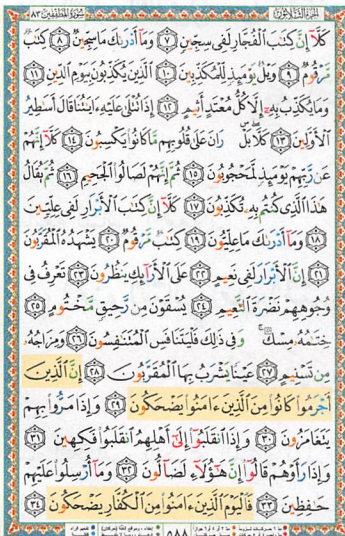 الجزء الثلاثون سورة المطففين ٨٣
كَلَّا إِنَّ كِتَٰبَ ٱلْفُجَّارِ لَفِى سِجِّينٍ ٧ وَمَآ أَدْرَىٰكَ مَا سِجِّينٌ ٨ كِتَٰبٌ
مَّرْقُومٌ ٩ وَيْلٌ يَوْمَئِذٍ لِّلْمُكَذِّبِينَ ١٠ ٱلَّذِينَ يُكَذِّبُونَ بِيَوْمِ ٱلدِّينِ ١١
وَمَا يُكَذِّبُ بِهِۦٓ إِلَّا كُلُّ مُعْتَدٍ أَثِيمٍ ١٢ إِذَا تُتْلَىٰ عَلَيْهِ ءَايَٰتُنَا قَالَ أَسَٰطِيرُ
ٱلْأَوَّلِينَ ١٣ كَلَّا بَلْ رَانَ عَلَىٰ قُلُوبِهِم مَّا كَانُوا۟ يَكْسِبُونَ ١٤ كَلَّآ إِنَّهُمْ
عَن رَّبِّهِمْ يَوْمَئِذٍ لَّمَحْجُوبُونَ ١٥ ثُمَّ إِنَّهُمْ لَصَالُوا۟ ٱلْجَحِيمِ ١٦ ثُمَّ يُقَالُ
هَٰذَا ٱلَّذِى كُنتُم بِهِۦ تُكَذِّبُونَ ١٧ كَلَّآ إِنَّ كِتَٰبَ ٱلْأَبْرَارِ لَفِى عِلِّيِّينَ
١٨ وَمَآ أَدْرَىٰكَ مَا عِلِّيُّونَ ١٩ كِتَٰبٌ مَّرْقُومٌ ٢٠ يَشْهَدُهُ ٱلْمُقَرَّبُونَ
٢١ إِنَّ ٱلْأَبْرَارَ لَفِى نَعِيمٍ ٢٢ عَلَى ٱلْأَرَآئِكِ يَنظُرُونَ ٢٣ تَعْرِفُ فِى
وُجُوهِهِمْ نَضْرَةَ ٱلنَّعِيمِ ٢٤ يُسْقَوْنَ مِن رَّحِيقٍ مَّخْتُومٍ ٢٥
خِتَٰمُهُۥ مِسْكٌ ۚ وَفِى ذَٰلِكَ فَلْيَتَنَافَسِ ٱلْمُتَنَٰفِسُونَ ٢٦ وَمِزَاجُهُۥ
مِن تَسْنِيمٍ ٢٧ عَيْنًا يَشْرَبُ بِهَا ٱلْمُقَرَّبُونَ ٢٨ إِنَّ ٱلَّذِينَ
أَجْرَمُوا۟ كَانُوا۟ مِنَ ٱلَّذِينَ ءَامَنُوا۟ يَضْحَكُونَ ٢٩ وَإِذَا مَرُّوا۟ بِهِمْ
يَتَغَامَزُونَ ٣٠ وَإِذَا ٱنقَلَبُوٓا۟ إِلَىٰٓ أَهْلِهِمُ ٱنقَلَبُوا۟ فَكِهِينَ ٣١
وَإِذَا رَأَوْهُمْ قَالُوٓا۟ إِنَّ هَٰٓؤُلَآءِ لَضَآلُّونَ ٣٢ وَمَآ أُرْسِلُوا۟ عَلَيْهِمْ
حَٰفِظِينَ ٣٣ فَٱلْيَوْمَ ٱلَّذِينَ ءَامَنُوا۟ مِنَ ٱلْكُفَّارِ يَضْحَكُونَ ٣٤
٥٨٨